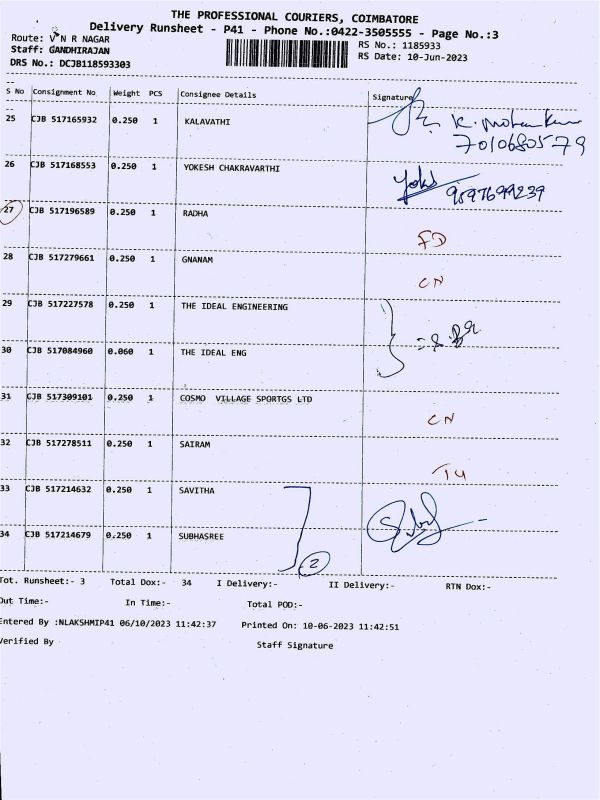 THE PROFESSIONAL COURIERS, COIMBATORE
Delivery Runsheet - P41 - Phone No.:0422-3505555 - Page No.:3
Route: V N R NAGAR
RS No.: 1185933
Staff: GANDHIRAJAN
RS Date: 10-Jun-2023
DRS No.: DCJB118593303
S No Consignment No Weight PCS Consignee Details Signature
25 CJB 517165932 0.250 1 KALAVATHI K. Mohan Kumar
7010680579
26 CJB 517168553 0.250 1 YOKESH CHAKRAVARTHI
9597699239
27 CJB 517196589 0.250 1 RADHA
FD
28 CJB 517279661 0.250 1 GNANAM
CN
29 CJB 517227578 0.250 1 THE IDEAL ENGINEERING
30 CJB 517084960 0.060 1 THE IDEAL ENG
31 CJB 517309101 0.250 1 COSMO VILLAGE SPORTGS LTD
CN
32 CJB 517278511 0.250 1 SAIRAM
33 CJB 517214632 0.250 1 SAVITHA
34 CJB 517214679 0.250 1 SUBHASREE
2
Tot. Runsheet:- 3 Total Dox:- 34 I Delivery:- II Delivery:- RTN Dox:-
Out Time:- In Time:- Total POD:-
Entered By :NLAKSHMIP41 06/10/2023 11:42:37 Printed On: 10-06-2023 11:42:51
Verified By Staff Signature